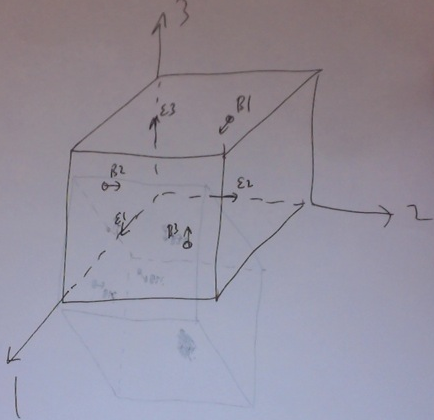 3
ε3
B1
B2
ε2
ε1
B3
2
1